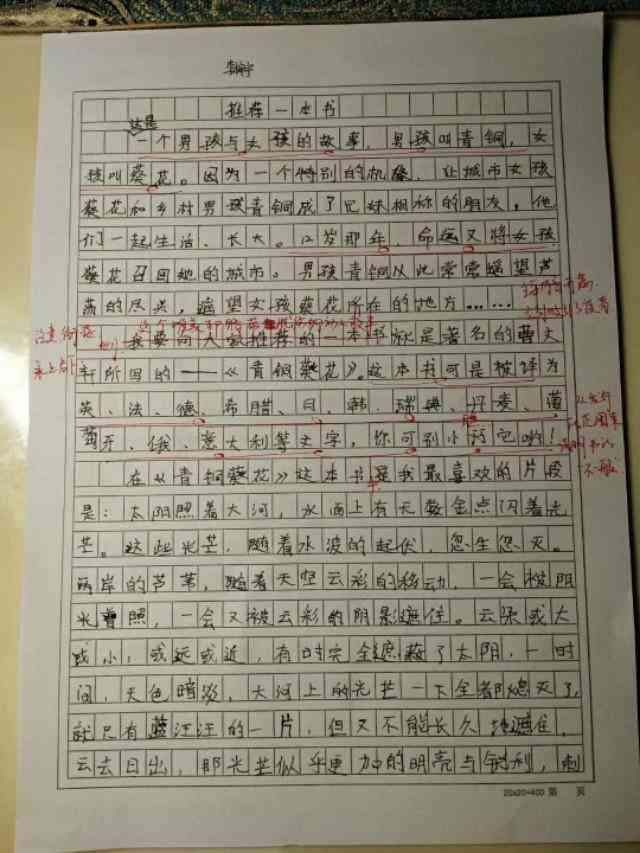 推荐一本书
这是
一个男孩与女孩的故事，男孩叫青铜，女
孩叫葵花。因为一个特别的机缘，让城市女孩
葵花和乡村男孩青铜成了兄妹相称的朋友，他
们一起生活、长大。12岁那年，命运又将女孩
葵花召回她的城市。男孩青铜从此常常遥望芦
荡的尽头，遥望女孩葵花所在的地方……
我要向大家推荐的一本书就是著名的曹文
轩所写的——《青铜葵花》。这本书可是被译为
英、法、德、希腊、日、韩、瑞典、丹麦、葡
萄牙、俄、意大利等文字，你可别小看它哟！
在《青铜葵花》这本书是我最喜欢的片段
是：太阳照着大河，水面上有无数金点闪着光
芒。这些光芒，随着水波的起伏，忽生忽灭。
两岸的芦苇，随着天空云彩的移动，一会被阳
光普照，一会又被云彩的阴影遮住。云朵或大
或小，或远或近，有时完全遮蔽了太阳，一时
间，天色暗淡，大河上的光芒一下全都熄灭了，
就只有蓝汪汪的一片，但又不能长久地遮住，
云去日出，那光芒似乎更加的明亮与锐利，刺
20x20=400 第 页